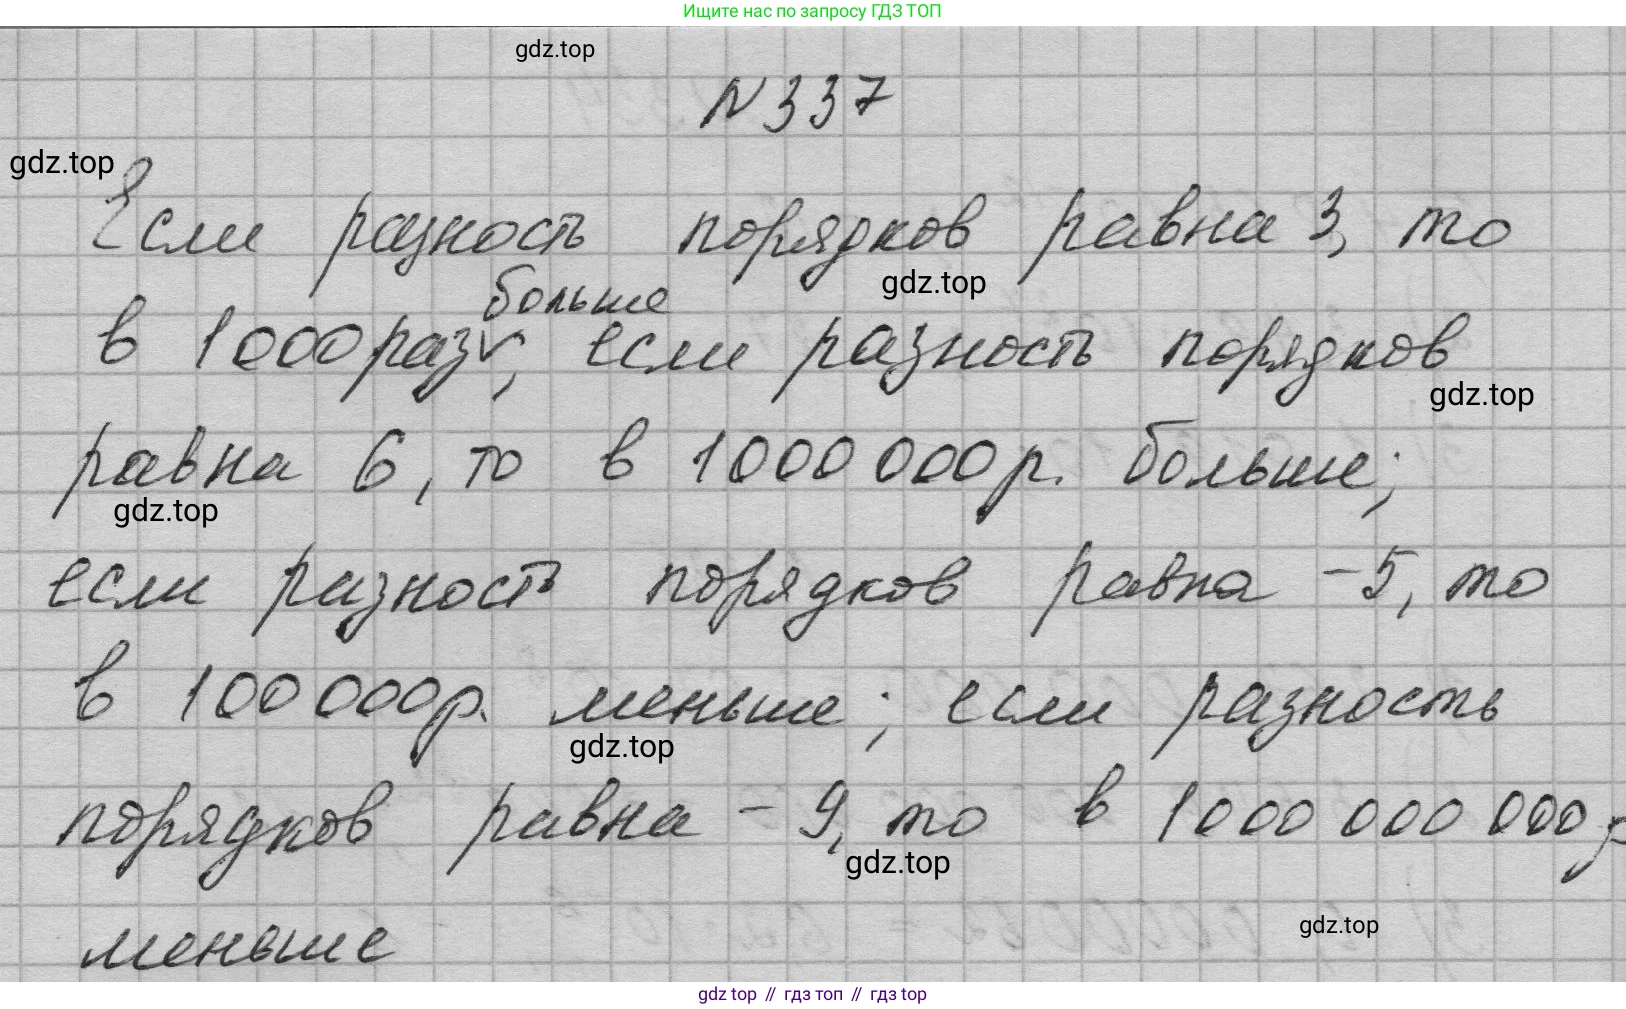 Ищите нас по запросу ГДЗ ТОП
gdz.top
N 337
gdz.top
Если разность порядков равна 3, то
gdz.top
больше
в 1000 раз ˅; если разность порядков
gdz.top
равна 6, то в 1000 000 р. больше;
gdz.top
если разность порядков равна -5, то
в 100 000 р. меньше; если разность
gdz.top
порядков равна -9, то в 1000 000 000 р
gdz.top
gdz.top
меньше
gdz top // гдз топ // гдз top